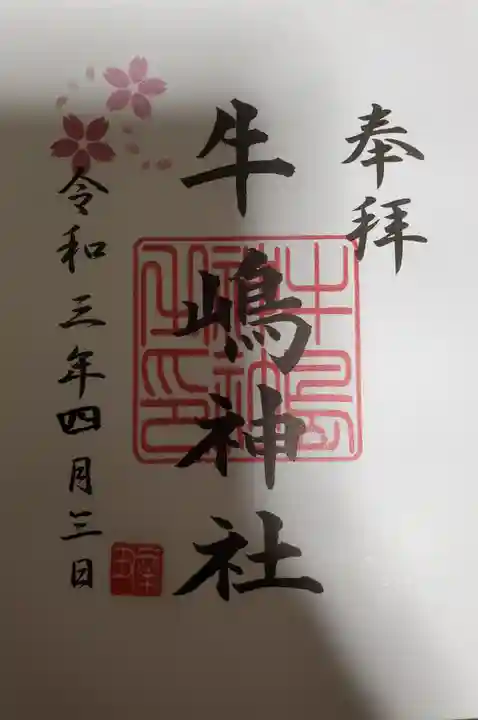 奉拝
牛嶋神社
令和三年四月三日